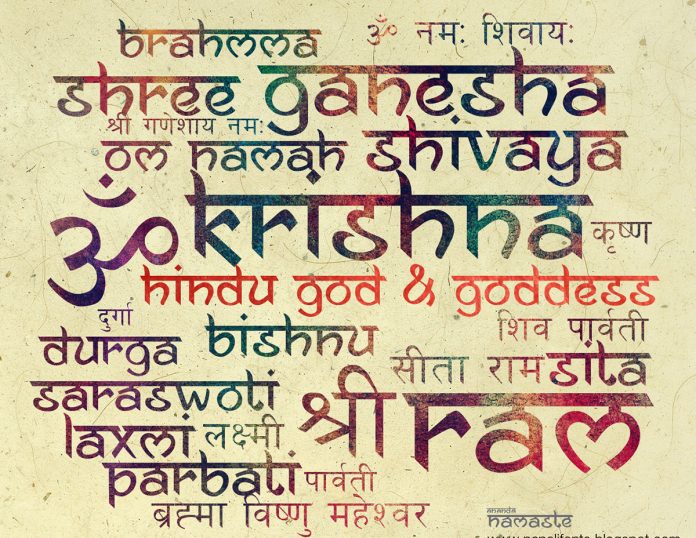 Brahmma ॐ नमः शिवायः
Shree Ganesha
श्री गणेशाय नमः
Om Namah Shivaya
ॐ Krishna कृष्ण
Hindu God & Goddess
दुर्गा
शिव पार्वती
Durga Bishnu
सीता राम Sita
Saraswoti
श्री Ram
Laxmi लक्ष्मी
Parbati पार्वती
ब्रह्मा विष्णु महेश्वर
ananda
namaste